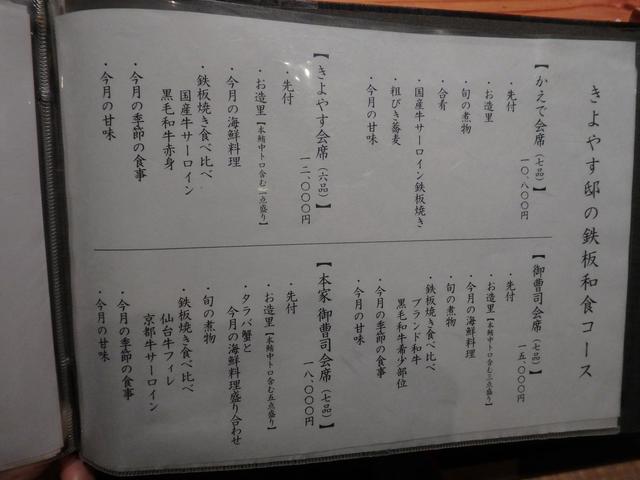 きよやす邸の鉄板和食コース
【かえで会席（七品）】
一〇、八〇〇円
・先付
・お造里
・旬の煮物
・合肴
・国産牛サーロイン鉄板焼き
・粗びき蕎麦
・今月の甘味
【きよやす会席（六品）】
一二、〇〇〇円
・先付
・お造里【本鮪中トロ含む二点盛り】
・今月の海鮮料理
・鉄板焼き食べ比べ
国産牛サーロイン
黒毛和牛赤身
・今月の季節の食事
・今月の甘味
【御曹司会席（七品）】
一五、〇〇〇円
・先付
・お造里【本鮪中トロ含む三点盛り】
・今月の海鮮料理
・旬の煮物
・鉄板焼き食べ比べ
ブランド和牛
黒毛和牛希少部位
・今月の季節の食事
・今月の甘味
【本家 御曹司会席（七品）】
一八、〇〇〇円
・先付
・お造里【本鮪中トロ含む五点盛り】
・タラバ蟹と
今月の海鮮料理盛り合わせ
・旬の煮物
・鉄板焼き食べ比べ
仙台牛フィレ
京都牛サーロイン
・今月の季節の食事
・今月の甘味